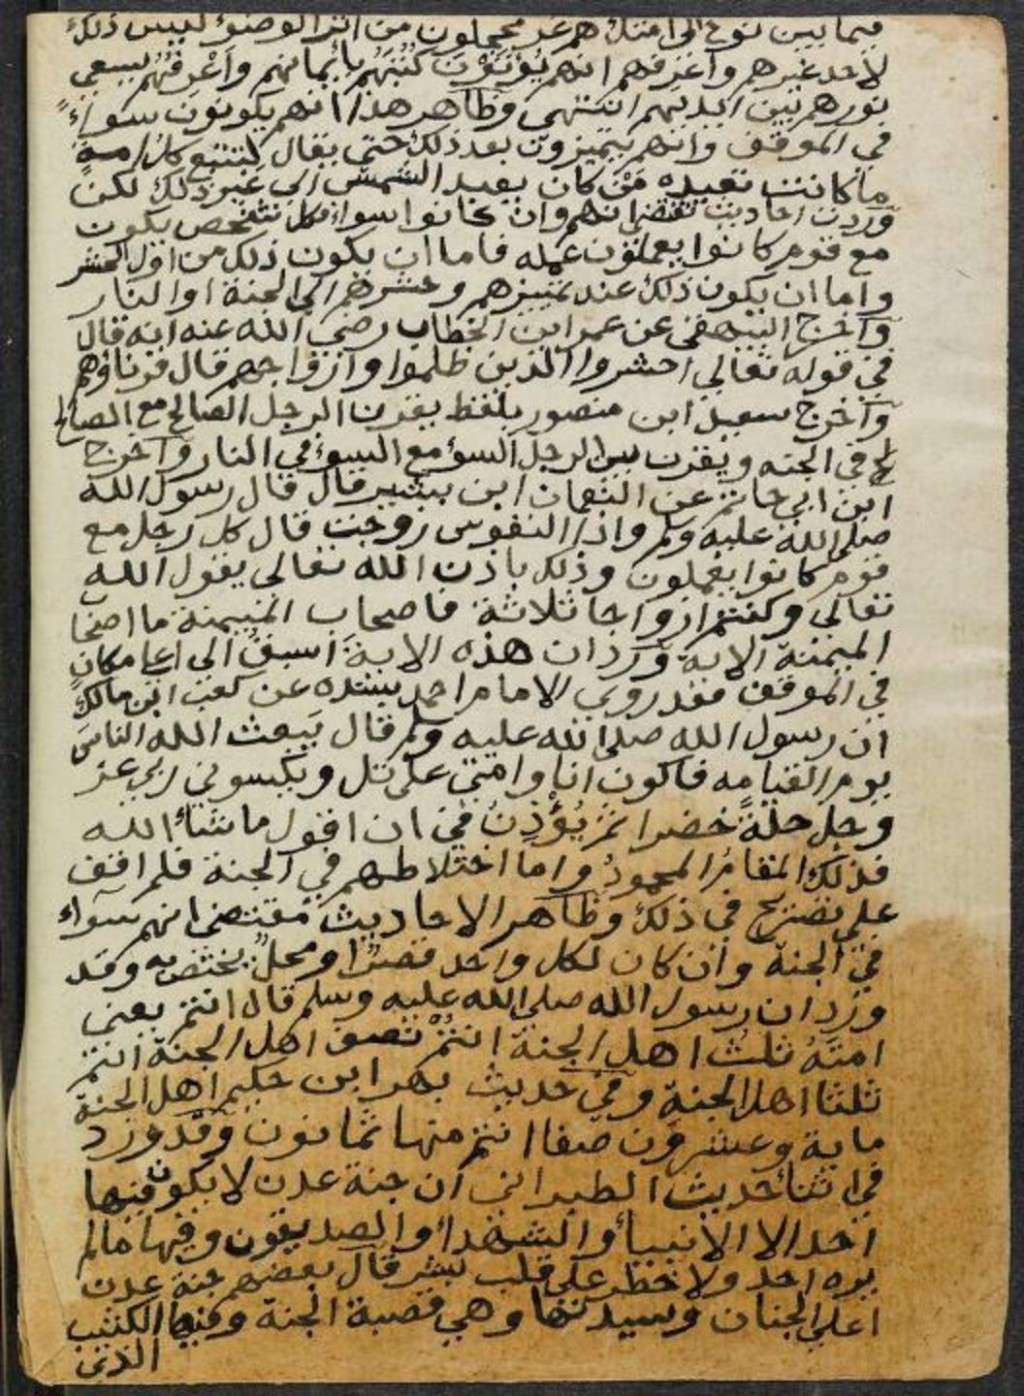 فيما بين نوح الى امتك هم غر محجلون من اثر الوضوء ليس ذلك
لاحد غيرهم واعرفهم انهم يؤتون كتبهم بايمانهم واعرفهم يسعى
نورهم بين ايديهم انتهى وظاهر هذا انهم يكونون سواءً
في الموقف وانهم يتميزون بعد ذلك حتى يقال لتتبع كل امة
ما كانت تعبده من كان يعبد الشمس الى غير ذلك لكن
وردت احاديث تقتضي انهم وان كانوا سواء فكل شخص يكون
مع قوم كانوا يعملون عمله فاما ان يكون ذلك من اول الحشر
واما ان يكون ذلك عند تمييزهم وحشرهم الى الجنة او النار
واخرج البيهقي عن عمر ابن الخطاب رضي الله عنه انه قال
في قوله تعالى احشروا الذين ظلموا وازواجهم قال قرناؤهم
واخرج سعيد ابن منصور بلفظ يقرن الرجل الصالح مع الصالح
في الجنه ويقرن بين الرجل السؤ مع السوء في النار واخرج
ابن ابي حاتم عن النعمان ابن بشير قال قال رسول الله
صلى الله عليه وسلم واذا النفوس زوجت قال كل رجل مع
قوم كانوا يعملون وذلك باذن الله تعالى يقول الله
تعالى وكنتم ازواجا ثلاثة فاصحاب الميمنة ما اصحا
الميمنة الاية وورد ان هذه الاية اسبق الى اعلى مكان
في الموقف فقد روى الامام احمد بسنده عن كعب ابن مالك
ان رسول الله صلى الله عليه وسلم قال يبعث الله الناس
يوم القيامه فاكون انا وامتي على تل ويكسوني ربي عز
وجل حلةً خضرا ثم يُؤْذن في ان اقول ما شاء الله
فذلك المقام المحمود واما اختلاطهم في الجنة فلم اقف
على تصريح في ذلك وظاهر الاحاديث مقتضى انهم سواء
في الجنة وان كان لكل واحد قصرًا ومحل يختص به وقد
ورد ان رسول الله صلى الله عليه وسلم قال انتم يعني
امته ثلث اهل الجنة انتم نصف اهل الجنة انتم
ثلثا اهل الجنة وفي حديث بهر ابن حكيم اهل الجنة
ماية وعشرون صفا انتم منها ثمانون وقد ورد
في اثناء حديث الطبراني ان جنة عدن لا يكون فيها
احد الا الانبياء والشهداء والصديقون وفيها مالم
يره احد ولا خطر على قلب بشر قال بعضهم جنة عدن
اعلى الجنان وسيدتها وهي قصبة الجنة وفيها الكثيب
الذى